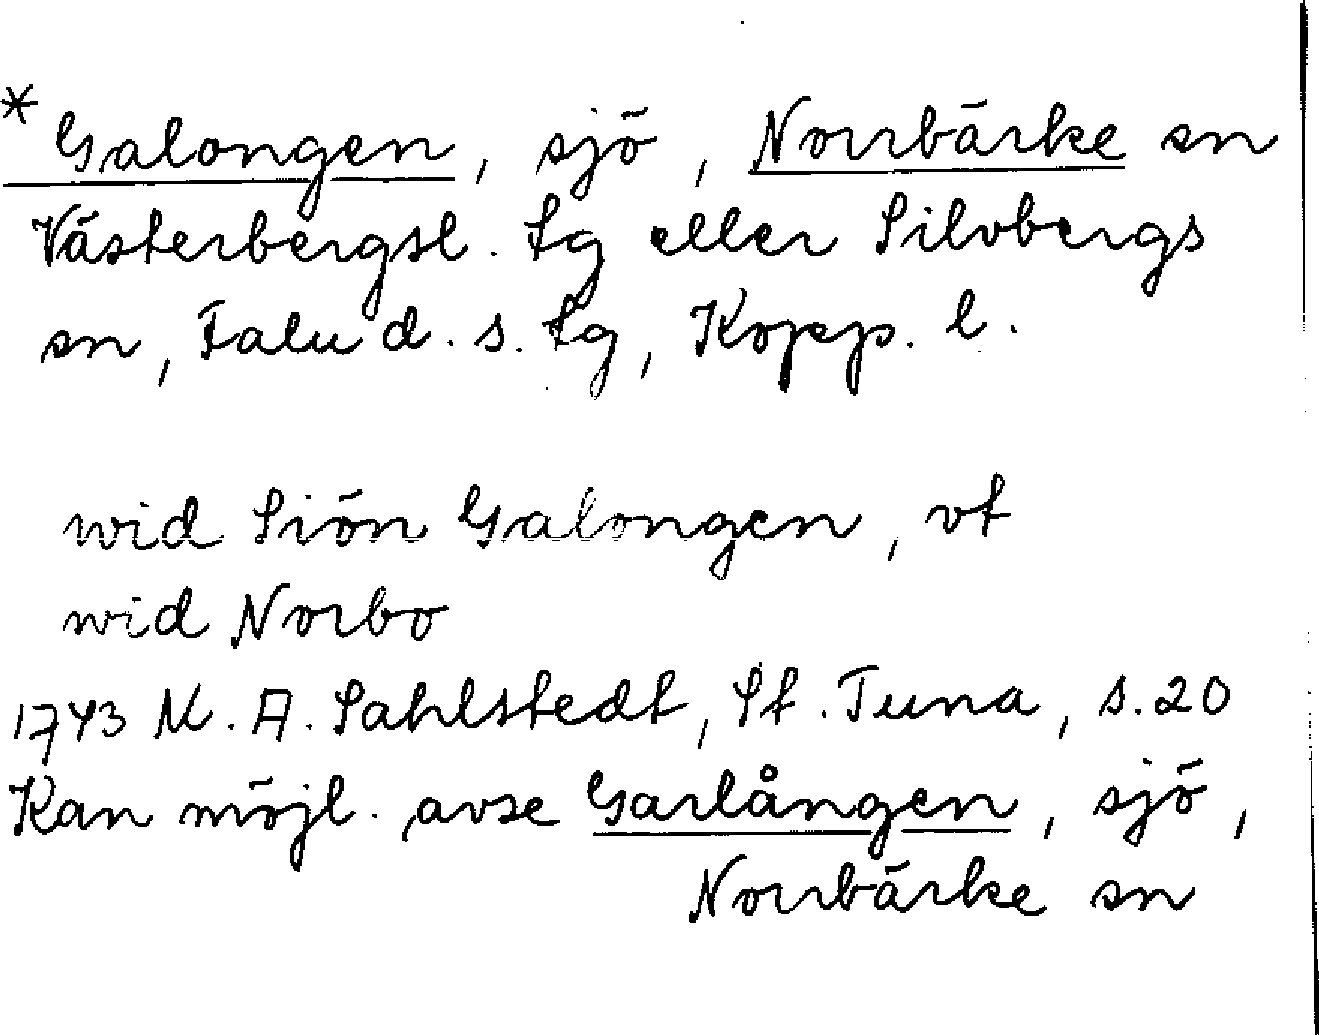 * Galongen, sjö, Norrbärke sn
Västerbergsl. tg eller Silvbergs
sn, Falu d. s. tg, Kopp. l.
wid Siön Galongen, vt
wid Norbo
1743 M. A. Sahlstedt, St. Tuna, s. 20
Kan möjl. avse Garlången, sjö,
Norrbärke sn